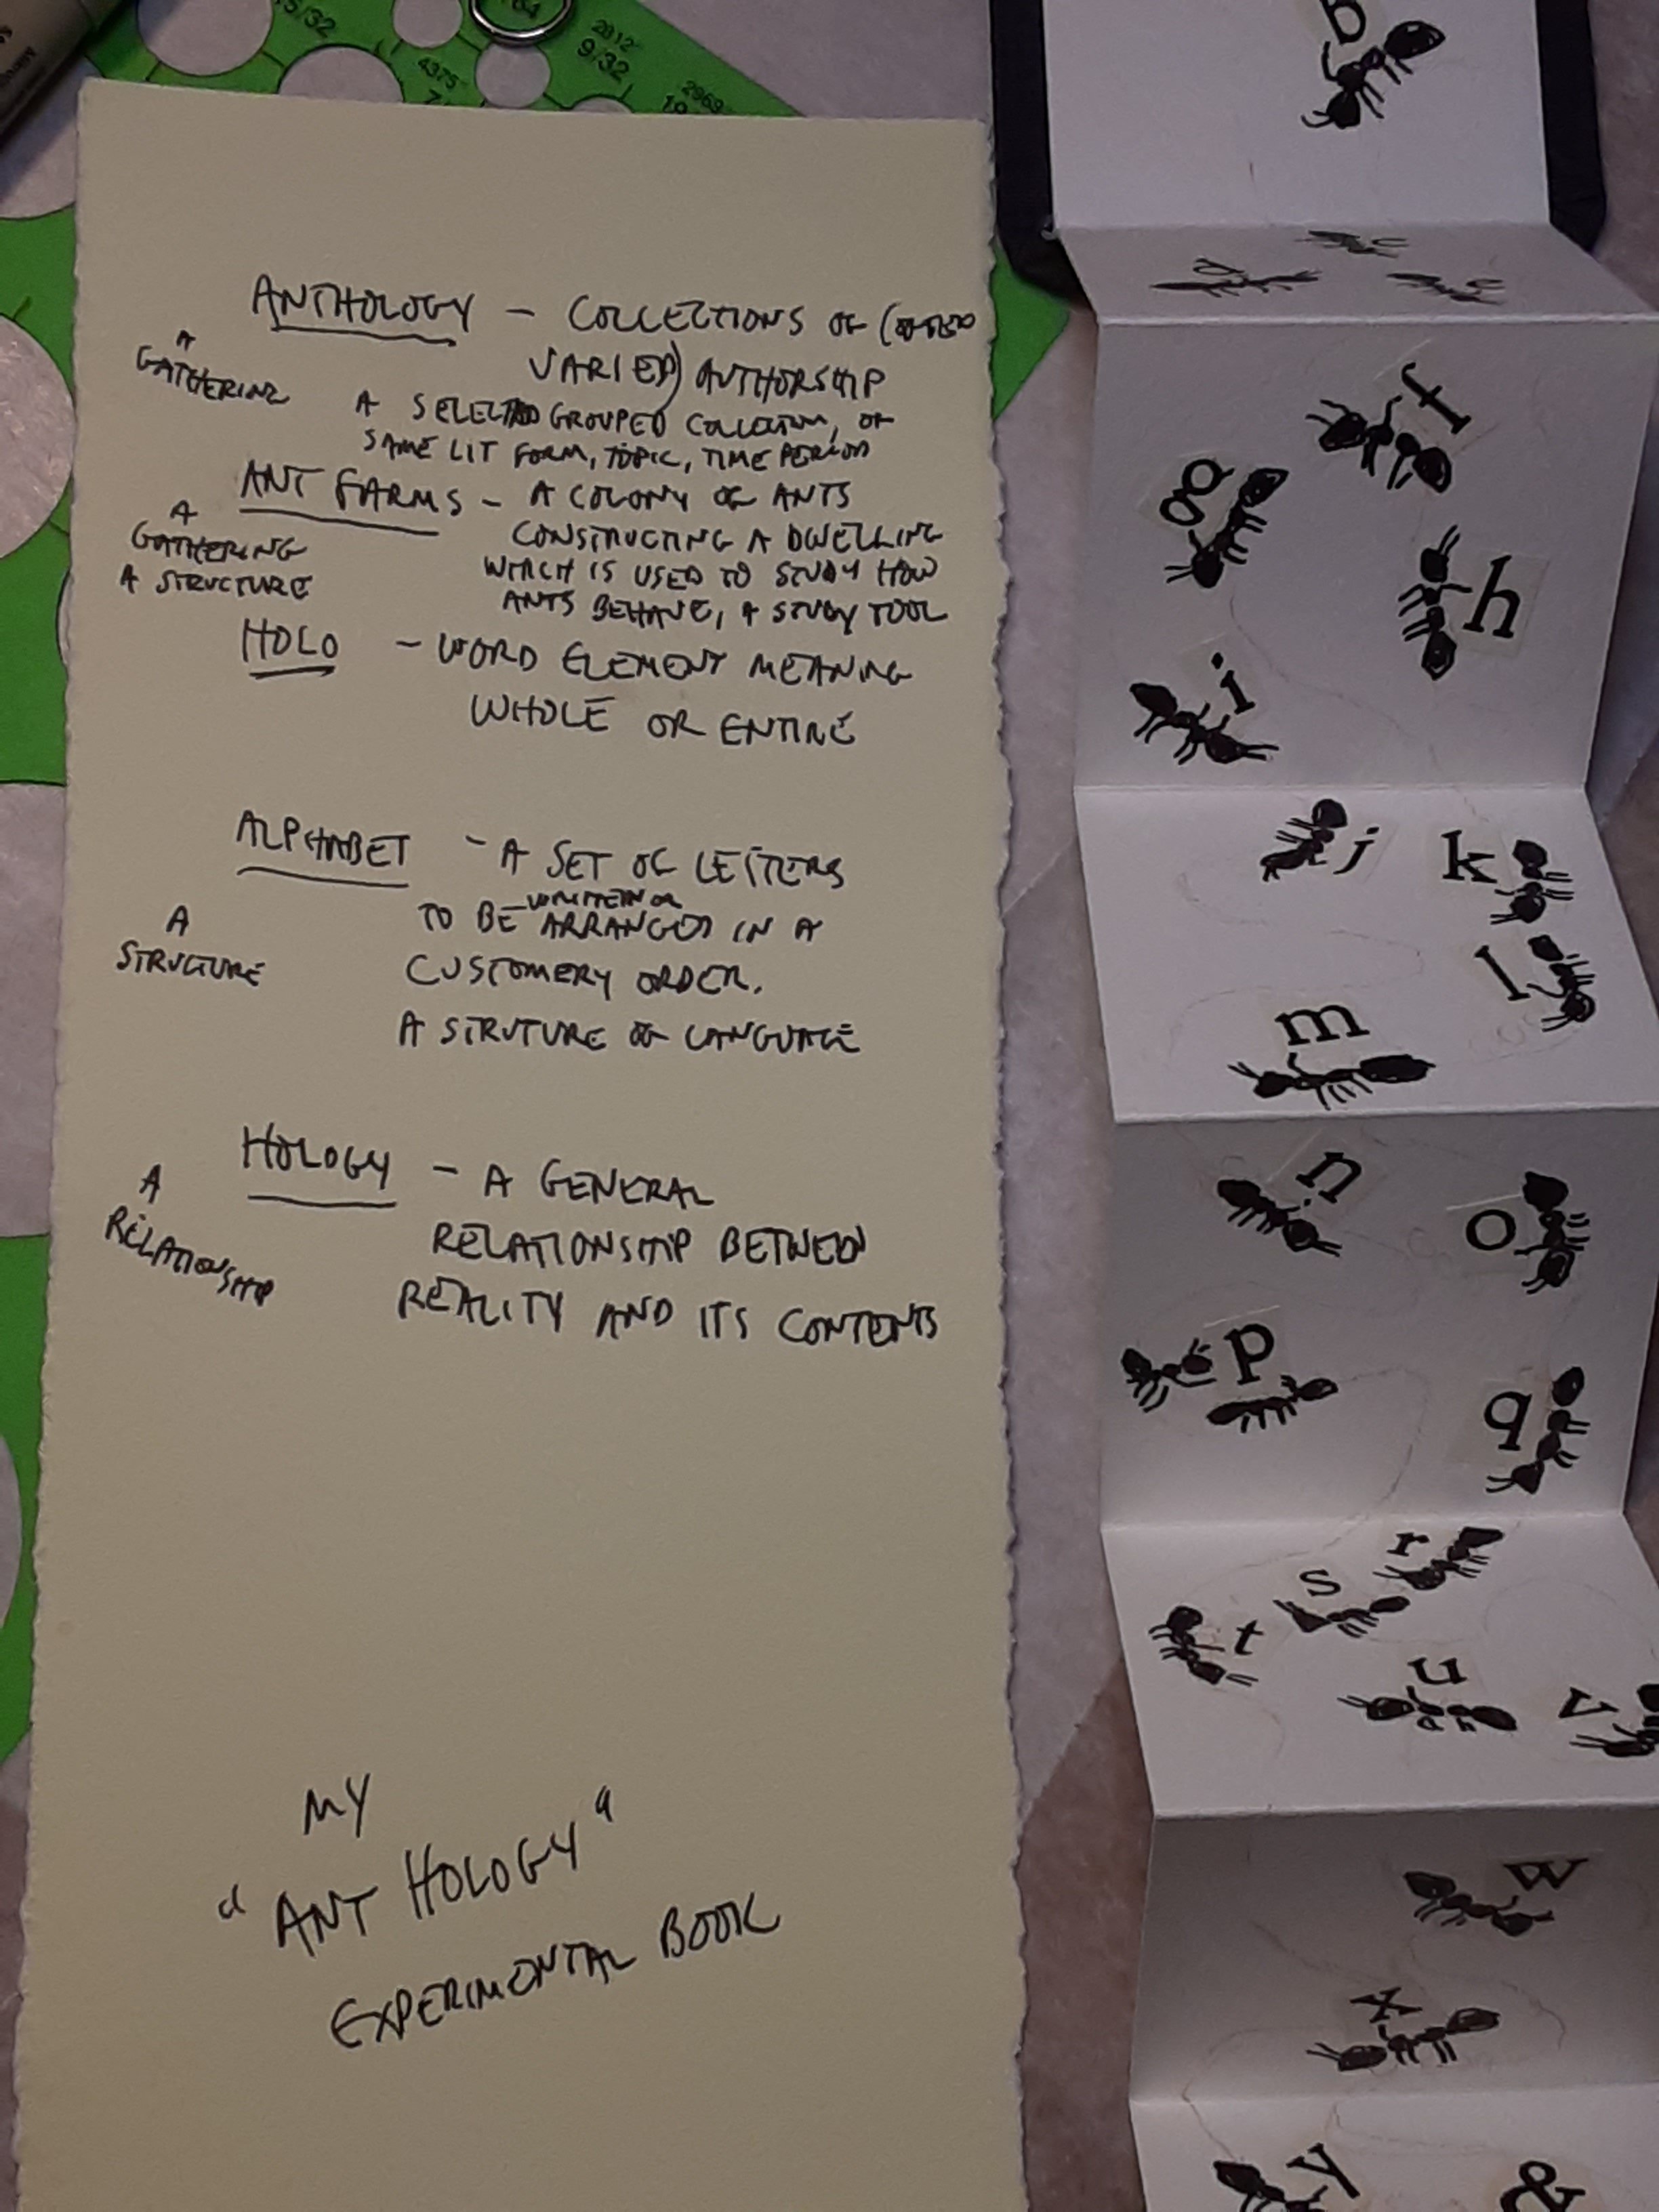 5/32
64
2812"
9/32
4375"
2969"
19
ANTHOLOGY – COLLECTIONS OF (OFTEN
VARIED) AUTHORSHIP
A
GATHERING
A SELECTED GROUPED COLLECTION, OF
SAME LIT FORM, TOPIC, TIME PERIOD
ANT FARMS – A COLONY OF ANTS
CONSTRUCTING A DWELLING
WHICH IS USED TO STUDY HOW
ANTS BEHAVE, A STUDY TOOL
A
GATHERING
A STRUCTURE
HOLO – WORD ELEMENT MEANING
WHOLE OR ENTIRE
ALPHABET – A SET OF LETTERS
WRITTEN OR
TO BE ARRANGED IN A
CUSTOMERY ORDER.
A STRUTURE OF LANGUAGE
A
STRUCTURE
HOLOGY – A GENERAL
RELATIONSHIP BETWEEN
REALITY AND ITS CONTENTS
A
RELATIONSHIP
MY
"ANT HOLOGY"
EXPERIMONTAL BOOK
b
c
d
e
f
g
h
i
j
k
l
m
n
o
p
q
r
s
t
u
v
w
x
y
&